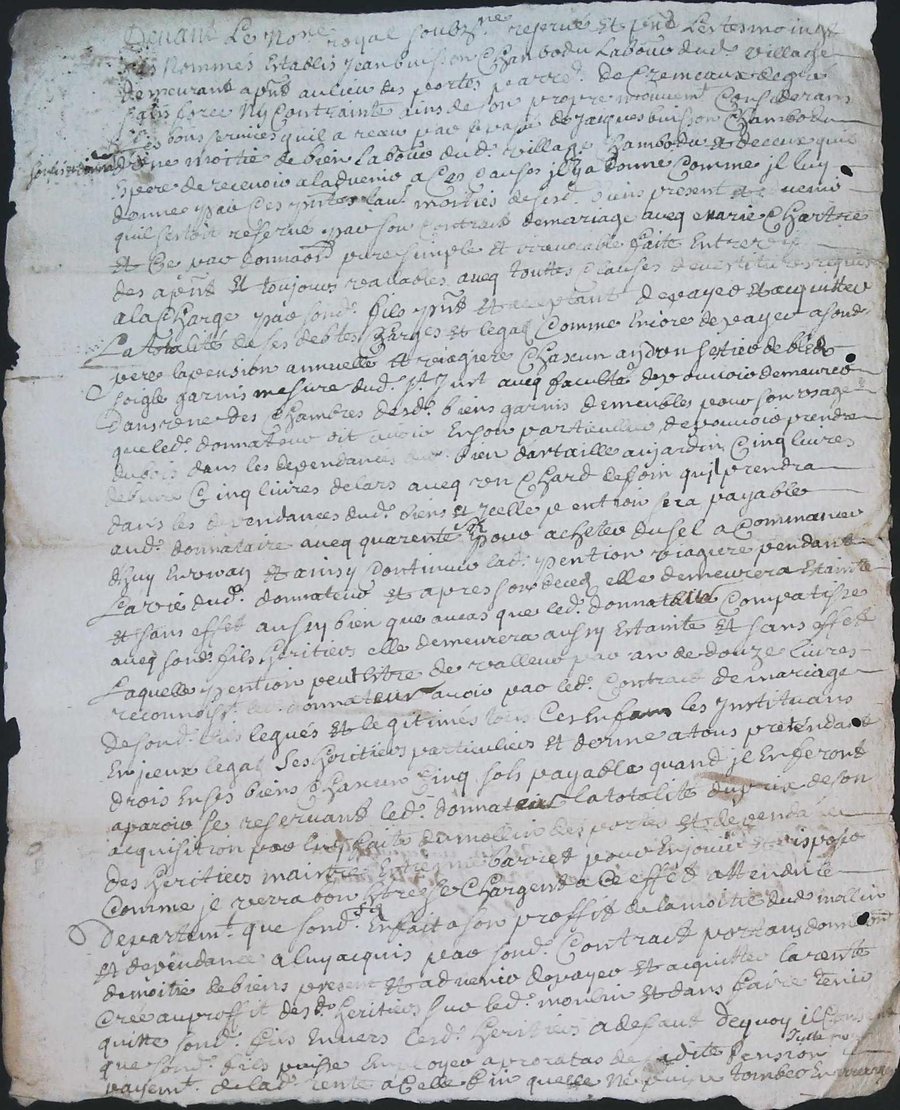 Devant Le Nore royal soubzne reservé et pnt Les tesmoings
bas Nommés Establis Jean buisson Chambodu Labour dud. village
demeurant apnt au lieu des portes parre. de Cremeaux de gré
sans force Ny Contrainte ains de son propre mouvemt. Considerans
Les bons services quil a receu par le passé de Jacques buisson Chambodu
donne moitié de bien Labour dud. village Chambodu et de ceux quil
Espere de recevoir a laduenir a Ces Causes il a donne Comme il luy
donne par Ces pntes Lau. moitiés de sd. biens present et aduenir
quil sestoit reservé par son Contract de mariage avec Marie Chartre
Et Ce par donnaon. pure simple Et irrevocable faite Entre vifs
des apnt Et toujours reallables avec touttes Clauses devestitures requises
a la Charge par sond. fils pnt Et acceptant de payer Et acquitter
La totalité de ses debtes Charges Et legat Comme Encore de payer a sond.
pere la pension annuelle Et viagere Chascun an d'un setier de bled
soigle garnis mesure dud. St Just avec faculté de pouvoir demeurer
dans une des Chambres desd. biens garnis de meubles pour son usage
que led. donnateur dit avoir En son particulier de pouvoir prendre
du bois dans les dependances du. bien dartailles au jardin Cinq livres
de beurre Cinq livres de lars avec un Chard de foin quil prendra
dans les dependances dud. biens Et Icelle pention sera payable
aud. donnataire avec quarente s. pour achepter du sel a Commancer
dhuy En un an Et ainsy Continuer lad. pention viagere pendant
La vie dud. donnateur Et apres son deceq elle demeurera Etainte
Et sans effet aussy bien que au cas que led. donnateur Compatisse
avec sond. fils heritier elle demeurera aussy Estainte Et sans effet
Laquelle pention peut Estre de valleur par an de douze Livres
reconnoist. led. donnateur avoir par led. Contract de mariage
de sond. fils legués Et legitimés tous Ces Enfans les Instituans
En jceux legat Ses heritiers particuliers Et donne a tous pretendant
drois En ses biens Chacun Cinq sols payable quand je En feront
aparoir se reservant led. donnateur la totalité du prix de son
acquisition par luy faite du mollin des portes Et dependances
des heritiers maitre Barret pour En jouir Et disposer
Comme je verra bon Estre se Chargend a Ce effet attendu le
Departemt. que sond. fils En fait a son proffit de la moitié dud. mollin
Et dependance a luy acquis par sond. Contract portans donnaon
de moitié de biens present Et aduenir de payer Et acquitter la rente
Creé au proffit desd. heritiers sur led. moulin Et dans faire tenir
quitte sond. fils Envers lesd. heritiers a defaut de quoy il Consent
que sond. fils puisse Employer a prorata de ladite pension
payemt. de lad. rente a Celle fin quelle ne puisse tomber En arrerage